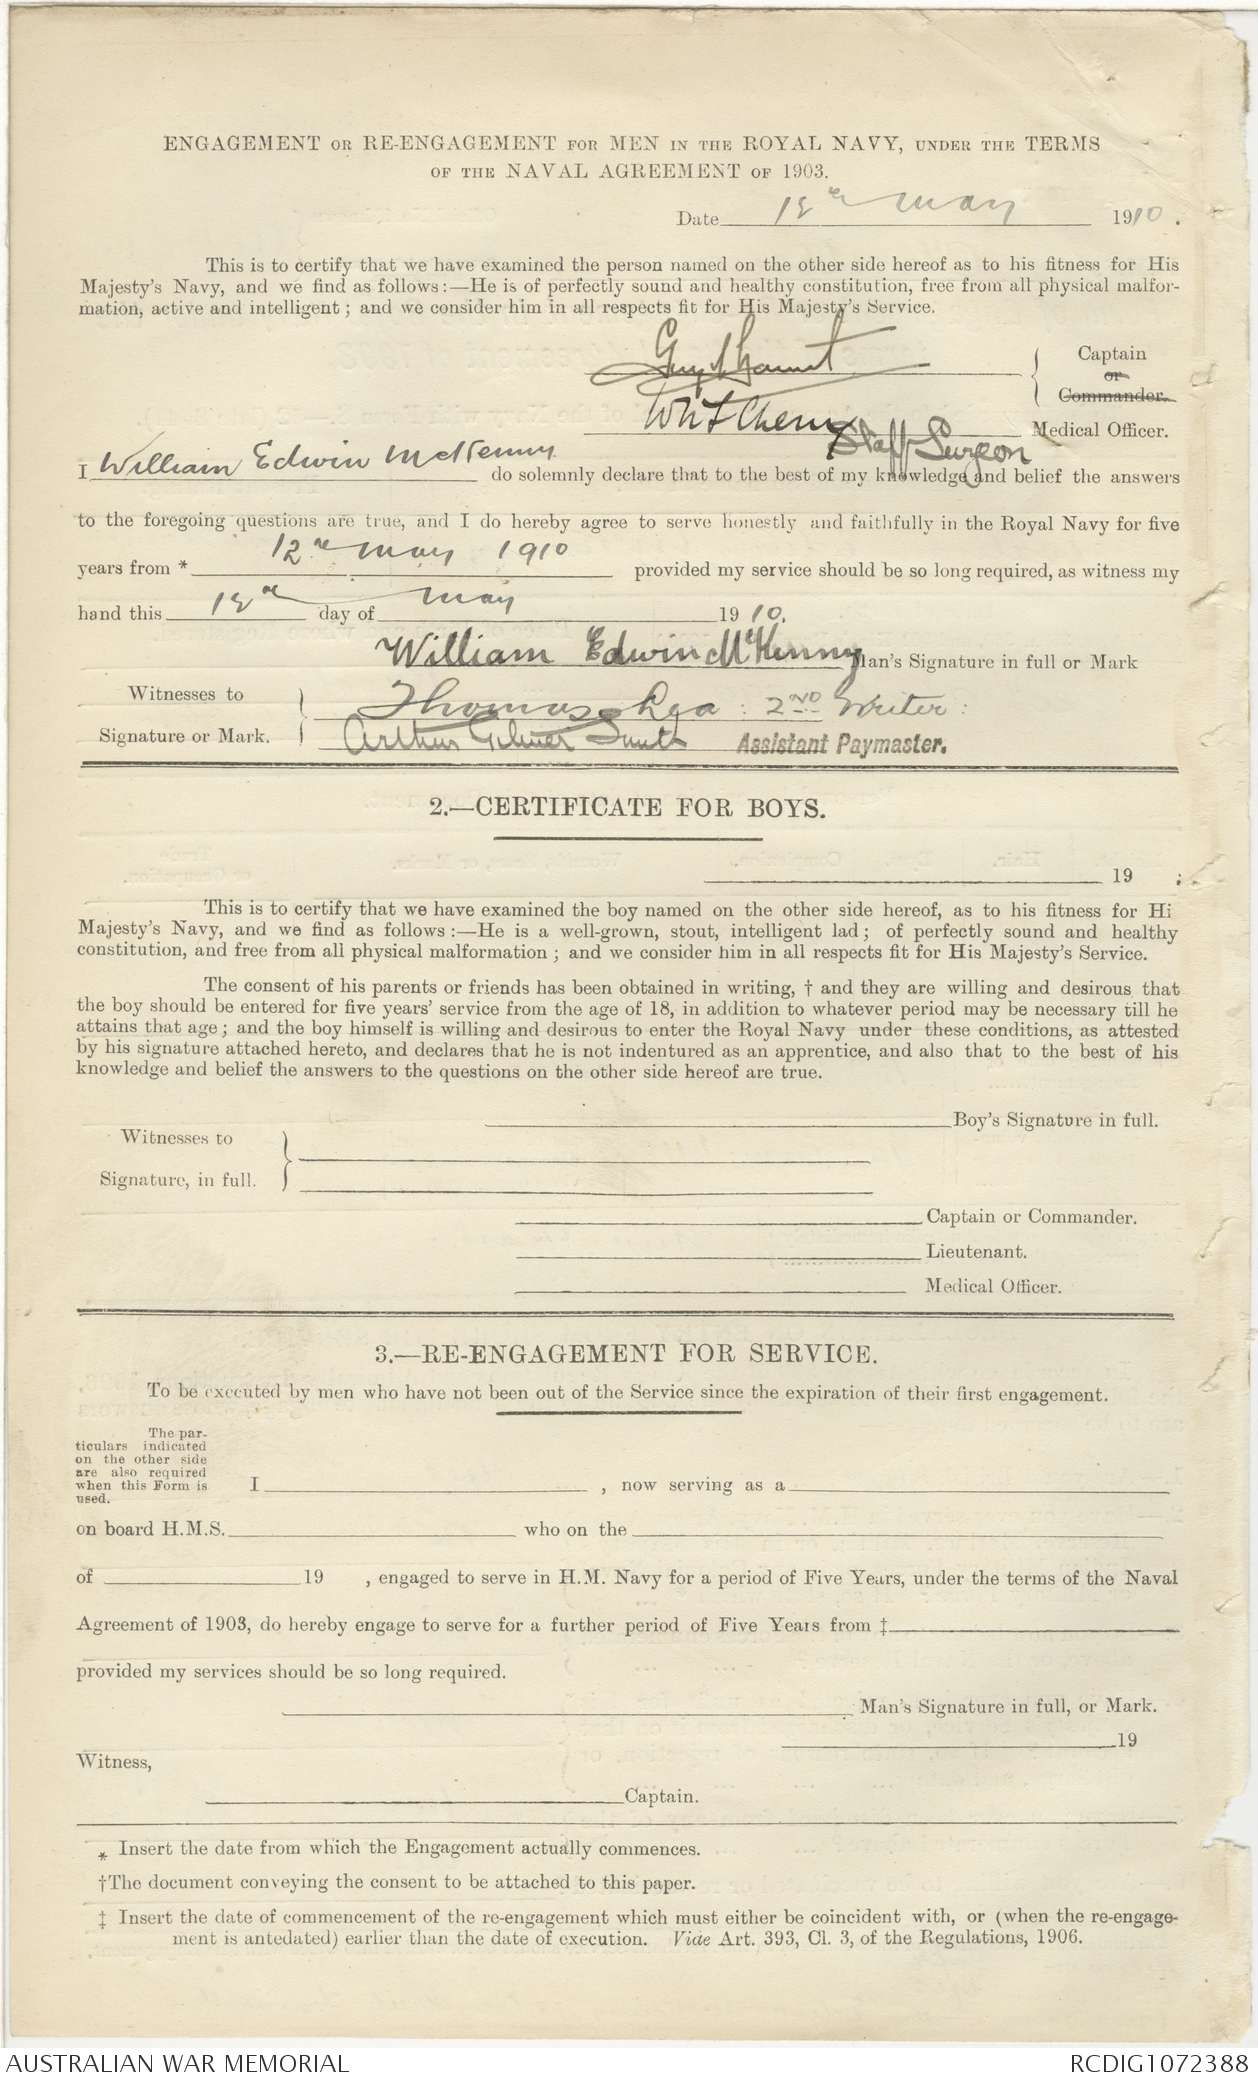 ENGAGEMENT OR RE-ENGAGEMENT FOR MEN IN THE ROYAL NAVY, UNDER THE TERMS
OF THE NAVAL AGREEMENT OF 1903.
Date 12th May 1910.
This is to certify that we have examined the person named on the other side hereof as to his fitness for His
Majesty's Navy, and we find as follows:—He is of perfectly sound and healthy constitution, free from all physical malfor-
mation, active and intelligent; and we consider him in all respects fit for His Majesty's Service.
Guy Gaunt Captain
or
Commander.
Medical Officer.
Staff Surgeon
I William Edwin McKenny do solemnly declare that to the best of my knowledge and belief the answers
to the foregoing questions are true, and I do hereby agree to serve honestly and faithfully in the Royal Navy for five
years from * 12th May 1910 provided my service should be so long required, as witness my
hand this 12th day of May 1910.
William Edwin McKenny Man's Signature in full or Mark
Witnesses to
Signature or Mark.
Thomas Lea: 2ND Writer:
Arthur Gilmer Smith Assistant Paymaster.
2.—CERTIFICATE FOR BOYS.
19 .
This is to certify that we have examined the boy named on the other side hereof, as to his fitness for Hi
Majesty's Navy, and we find as follows:—He is a well-grown, stout, intelligent lad; of perfectly sound and healthy
constitution, and free from all physical malformation; and we consider him in all respects fit for His Majesty's Service.
The consent of his parents or friends has been obtained in writing, † and they are willing and desirous that
the boy should be entered for five years' service from the age of 18, in addition to whatever period may be necessary till he
attains that age; and the boy himself is willing and desirous to enter the Royal Navy under these conditions, as attested
by his signature attached hereto, and declares that he is not indentured as an apprentice, and also that to the best of his
knowledge and belief the answers to the questions on the other side hereof are true.
Boy's Signature in full.
Witnesses to
Signature, in full.
Captain or Commander.
Lieutenant.
Medical Officer.
3.—RE-ENGAGEMENT FOR SERVICE.
To be executed by men who have not been out of the Service since the expiration of their first engagement.
The par-
ticulars indicated
on the other side
are also required
when this Form is
used.
I , now serving as a
on board H.M.S. who on the
of 19 , engaged to serve in H.M. Navy for a period of Five Years, under the terms of the Naval
Agreement of 1903, do hereby engage to serve for a further period of Five Years from ‡
provided my services should be so long required.
Man's Signature in full, or Mark.
19
Witness,
Captain.
* Insert the date from which the Engagement actually commences.
†The document conveying the consent to be attached to this paper.
‡ Insert the date of commencement of the re-engagement which must either be coincident with, or (when the re-engage-
ment is antedated) earlier than the date of execution. Vide Art. 393, Cl. 3, of the Regulations, 1906.
AUSTRALIAN WAR MEMORIAL RCDIG1072388